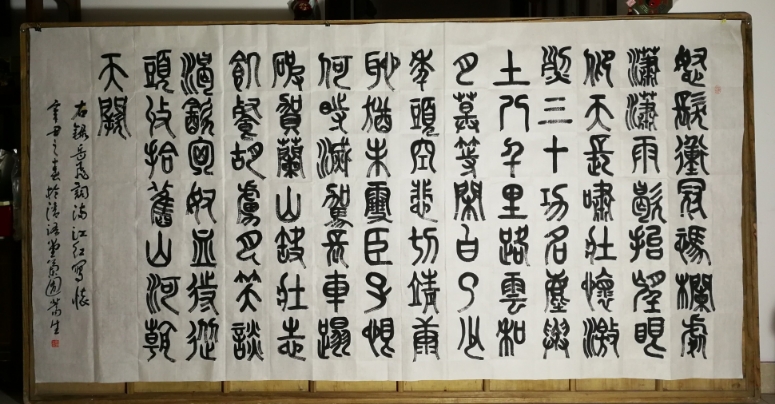 怒髮衝冠憑欄處
瀟瀟雨歇抬望眼
仰天長嘯壯懷激
烈三十功名塵與
土八千里路雲和
月莫等閑白了少
年頭空悲切靖康
恥猶未雪臣子恨
何時滅駕長車踏
破賀蘭山缺壯志
飢餐胡虜肉笑談
渴飲匈奴血待從
頭收拾舊山河朝
天闕
右錄岳飛詞滿江紅寫懷
辛丑之春於清